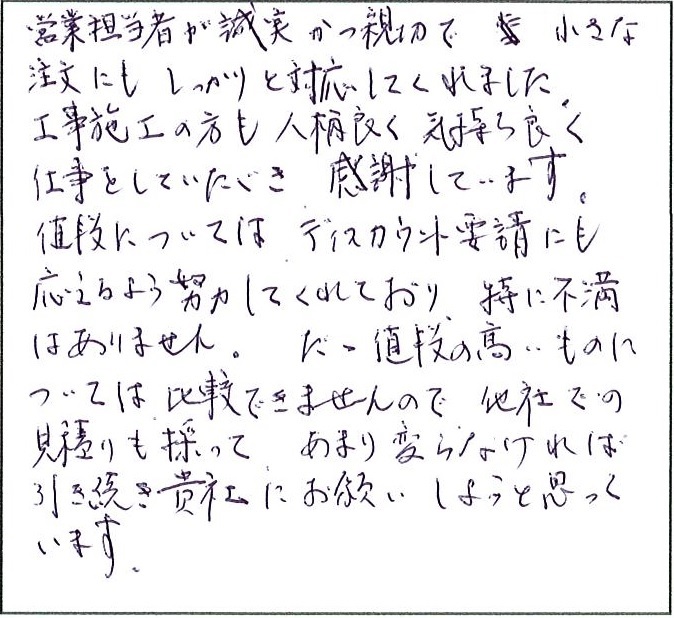 営業担当者が誠実かつ親切で 小さな
注文にもしっかりと対応してくれました。
工事施工の方も人柄良く気持ち良く
仕事をしていただき 感謝しています。
値段については ディスカウント要請にも
応えるよう努力してくれており、特に不満
はありません。 ただ値段の高いものに
ついては比較できませんので 他社での
見積りも採って あまり変らなければ
引き続き貴社にお願いしようと思って
います。